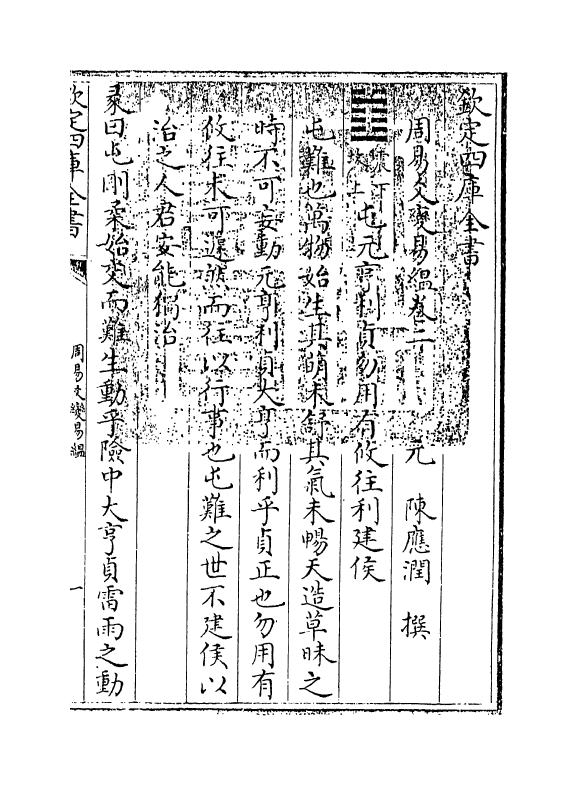 欽定四庫全書
周易爻變易縕卷二
元　陳應潤　撰
震下坎上
屯元亨利貞勿用有攸往利建侯
屯難也萬物始生其萌未舒其氣未暢天造草昧之
時不可妄動元亨利貞大亨而利乎貞正也勿用有
攸往未可遽然而往以行事也屯難之世不建侯以
治之人君安能獨治
彖曰屯剛柔始交而難生動乎險中大亨貞雷雨之動
欽定四庫全書
周易爻變易縕
一